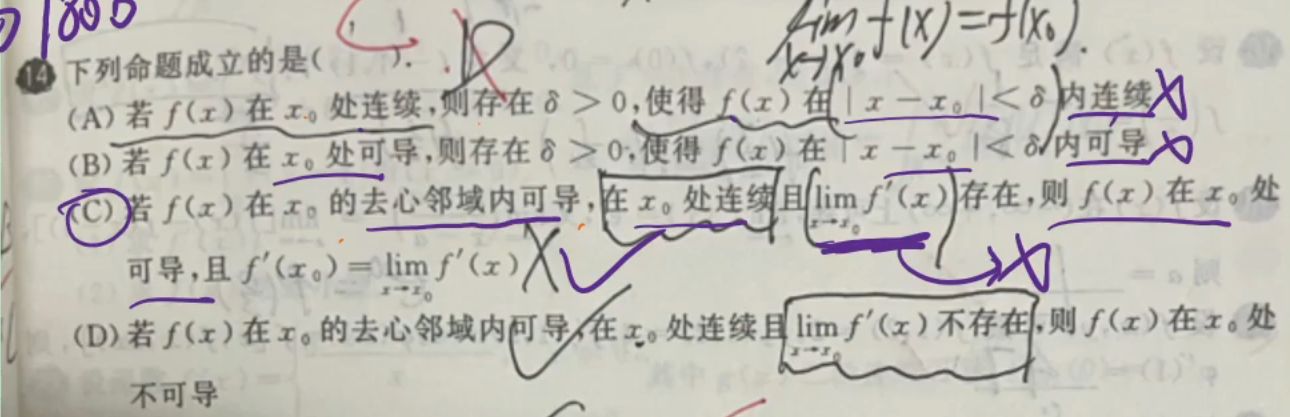 1800
lim f(x)=f(x₀).
x→x₀
14 下列命题成立的是( ). D
(A) 若 f(x) 在 x₀ 处连续,则存在 δ > 0,使得 f(x) 在 | x - x₀ | < δ 内连续
(B) 若 f(x) 在 x₀ 处可导,则存在 δ > 0,使得 f(x) 在 | x - x₀ | < δ 内可导
(C) 若 f(x) 在 x₀ 的去心邻域内可导,在 x₀ 处连续且 lim f′(x) 存在,则 f(x) 在 x₀ 处
x→x₀
可导,且 f′(x₀) = lim f′(x)
x→x₀
(D) 若 f(x) 在 x₀ 的去心邻域内可导,在 x₀ 处连续且 lim f′(x) 不存在,则 f(x) 在 x₀ 处
x→x₀
不可导